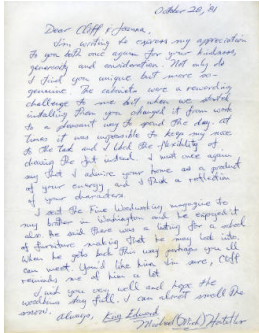 October 28, '81
Dear Cliff & Joanna,
I'm writing to express my appreciation
to you both once again for your kindness,
generosity and consideration. Not only do
I find you unique but more so-
genuine. The cabinets were a rewarding
challenge to me but when we started
installing them you changed it from work
to a pleasant way to spend the day. At
times it was impossible to keep my nose
to the task and I liked the flexibility of
chewing the fat instead. I must once again
say that I admire your home as a product
of your energy, and I think a reflection
of your characters.
I sent the Fine Woodworking magazine to
my brother in Washington and he enjoyed it
also he and Dave was a listing for a school
of furniture making that he may look into.
When he gets back this way perhaps you all
can meet. You'd like him I'm sure, Cliff
reminds me of him a lot.
I wish you very well and hope the
woodbox stays full. I can almost smell the
snow.
Always, King Edward
Michael (Mich)